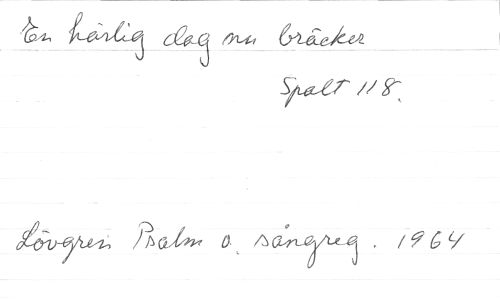 En härlig dag nu bräcker
Spalt 118.
Lövgren Psalm o. sångreg. 1964